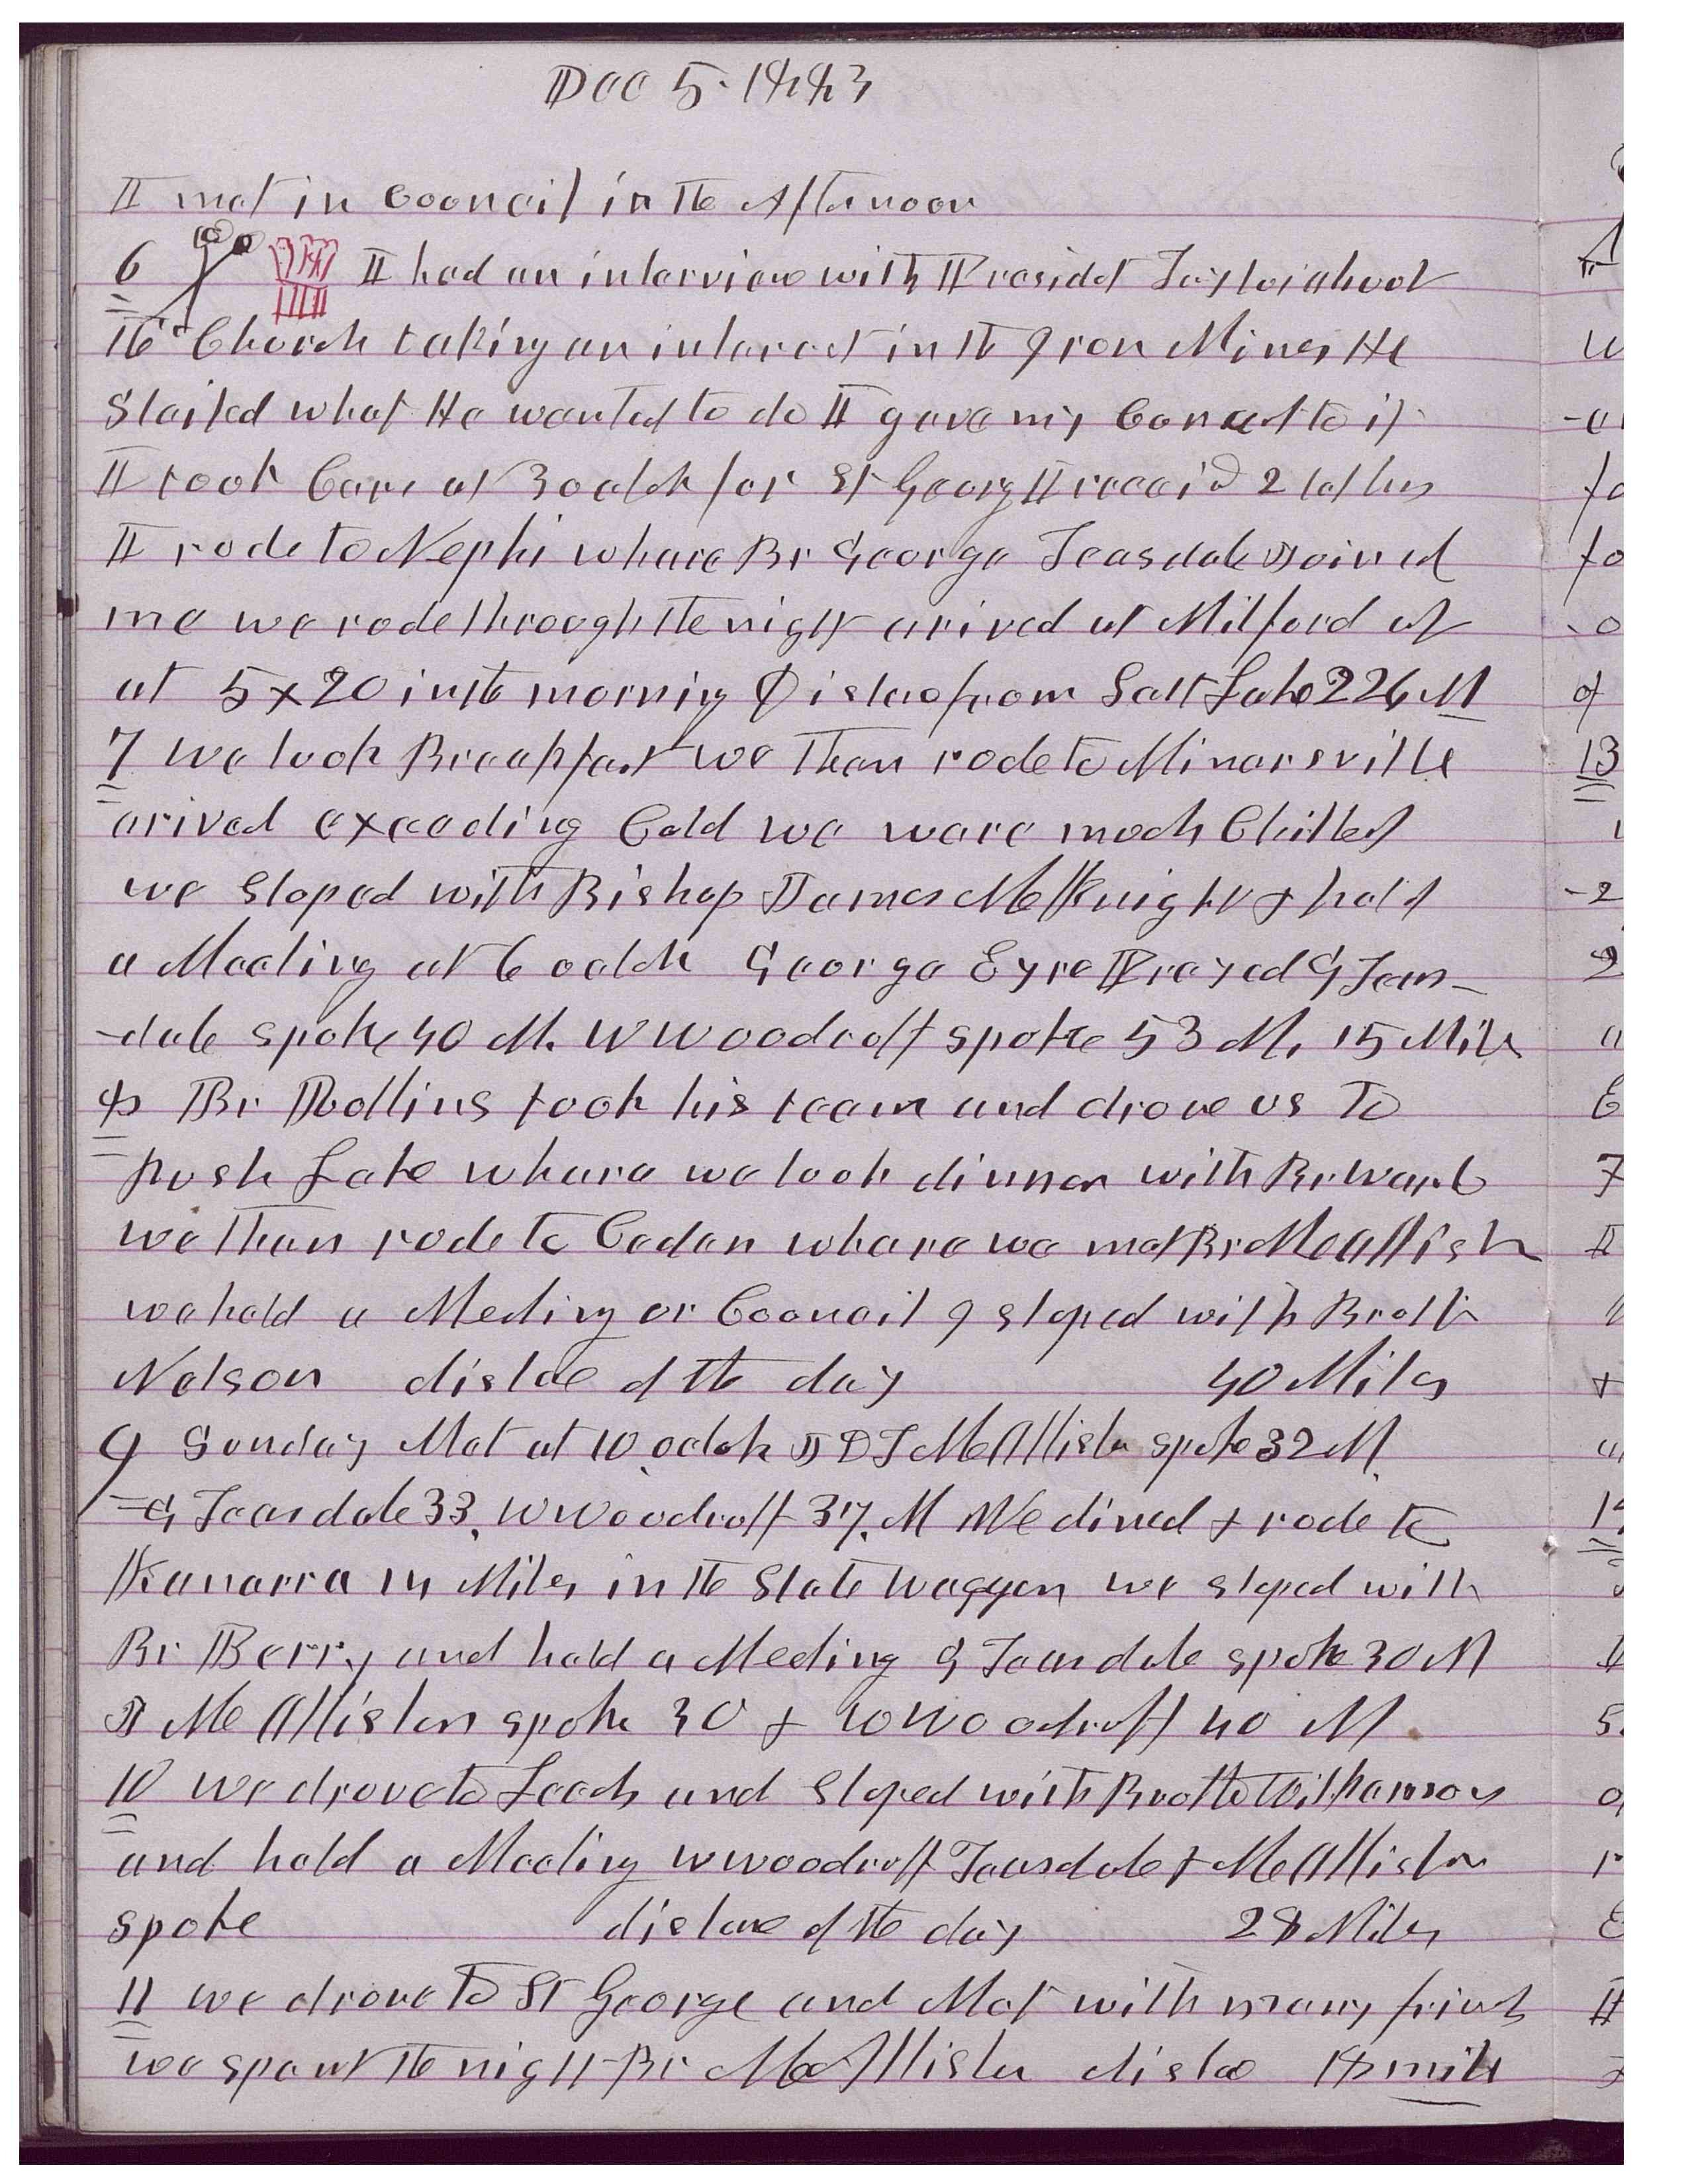 Dec 5. 1883
I met in Council in the Afternoon
6 I had an interview with Presidet Taylor about
the Church taking an interest in the Iron Mines He
Staited what He wanted to do I gave my Consent to it
I took Cars at 3 oclok for St Georg I receivd 2 letters
I rode to Nephi whare Br George Teasdale Joined
me we rode through the night arived at Milford at
at 5x20 in the morning Distac from Salt Lake 226 M
7 We took Breakfast we then rode to Minersville
arived exceeding Cold we ware much Chilled
we stoped with Bishop James McKnight & held
a Meeting at 6 oclok George Eyre Prayed G Teas-
-dale spoke 40 M. W Woodruff spoke 53 M, 15 Mils
8 Br Rollins took his team and drove us To
Rush Lake whare we took dinner with Br Ward
we then rode to Cedar whare we met Br McAllistr
we held a Meeting or Council & stoped with Broth
Nelson distae of the day 40 Miles
9 Sunday Met at 10 oclok J D T McAllister spoke 32 M
G Teasdale 33, W Woodruff 37, M We dined & rode to
Kanarra 14 Miles in the State Waggon we stoped with
Br Berry and held a Meeting G Teasdale spoke 30 M
J McAllister spoke 30 & W Woodruff 40 M
10 we drove to Leeds and Stoped with Brother Wilkinson
and held a Meeting W Woodruff Teasdale & McAllister
spoke distane of the day 28 Miles
11 we drove to St George and Met with many friends
we spent the night Br McAllister distae 18 mils